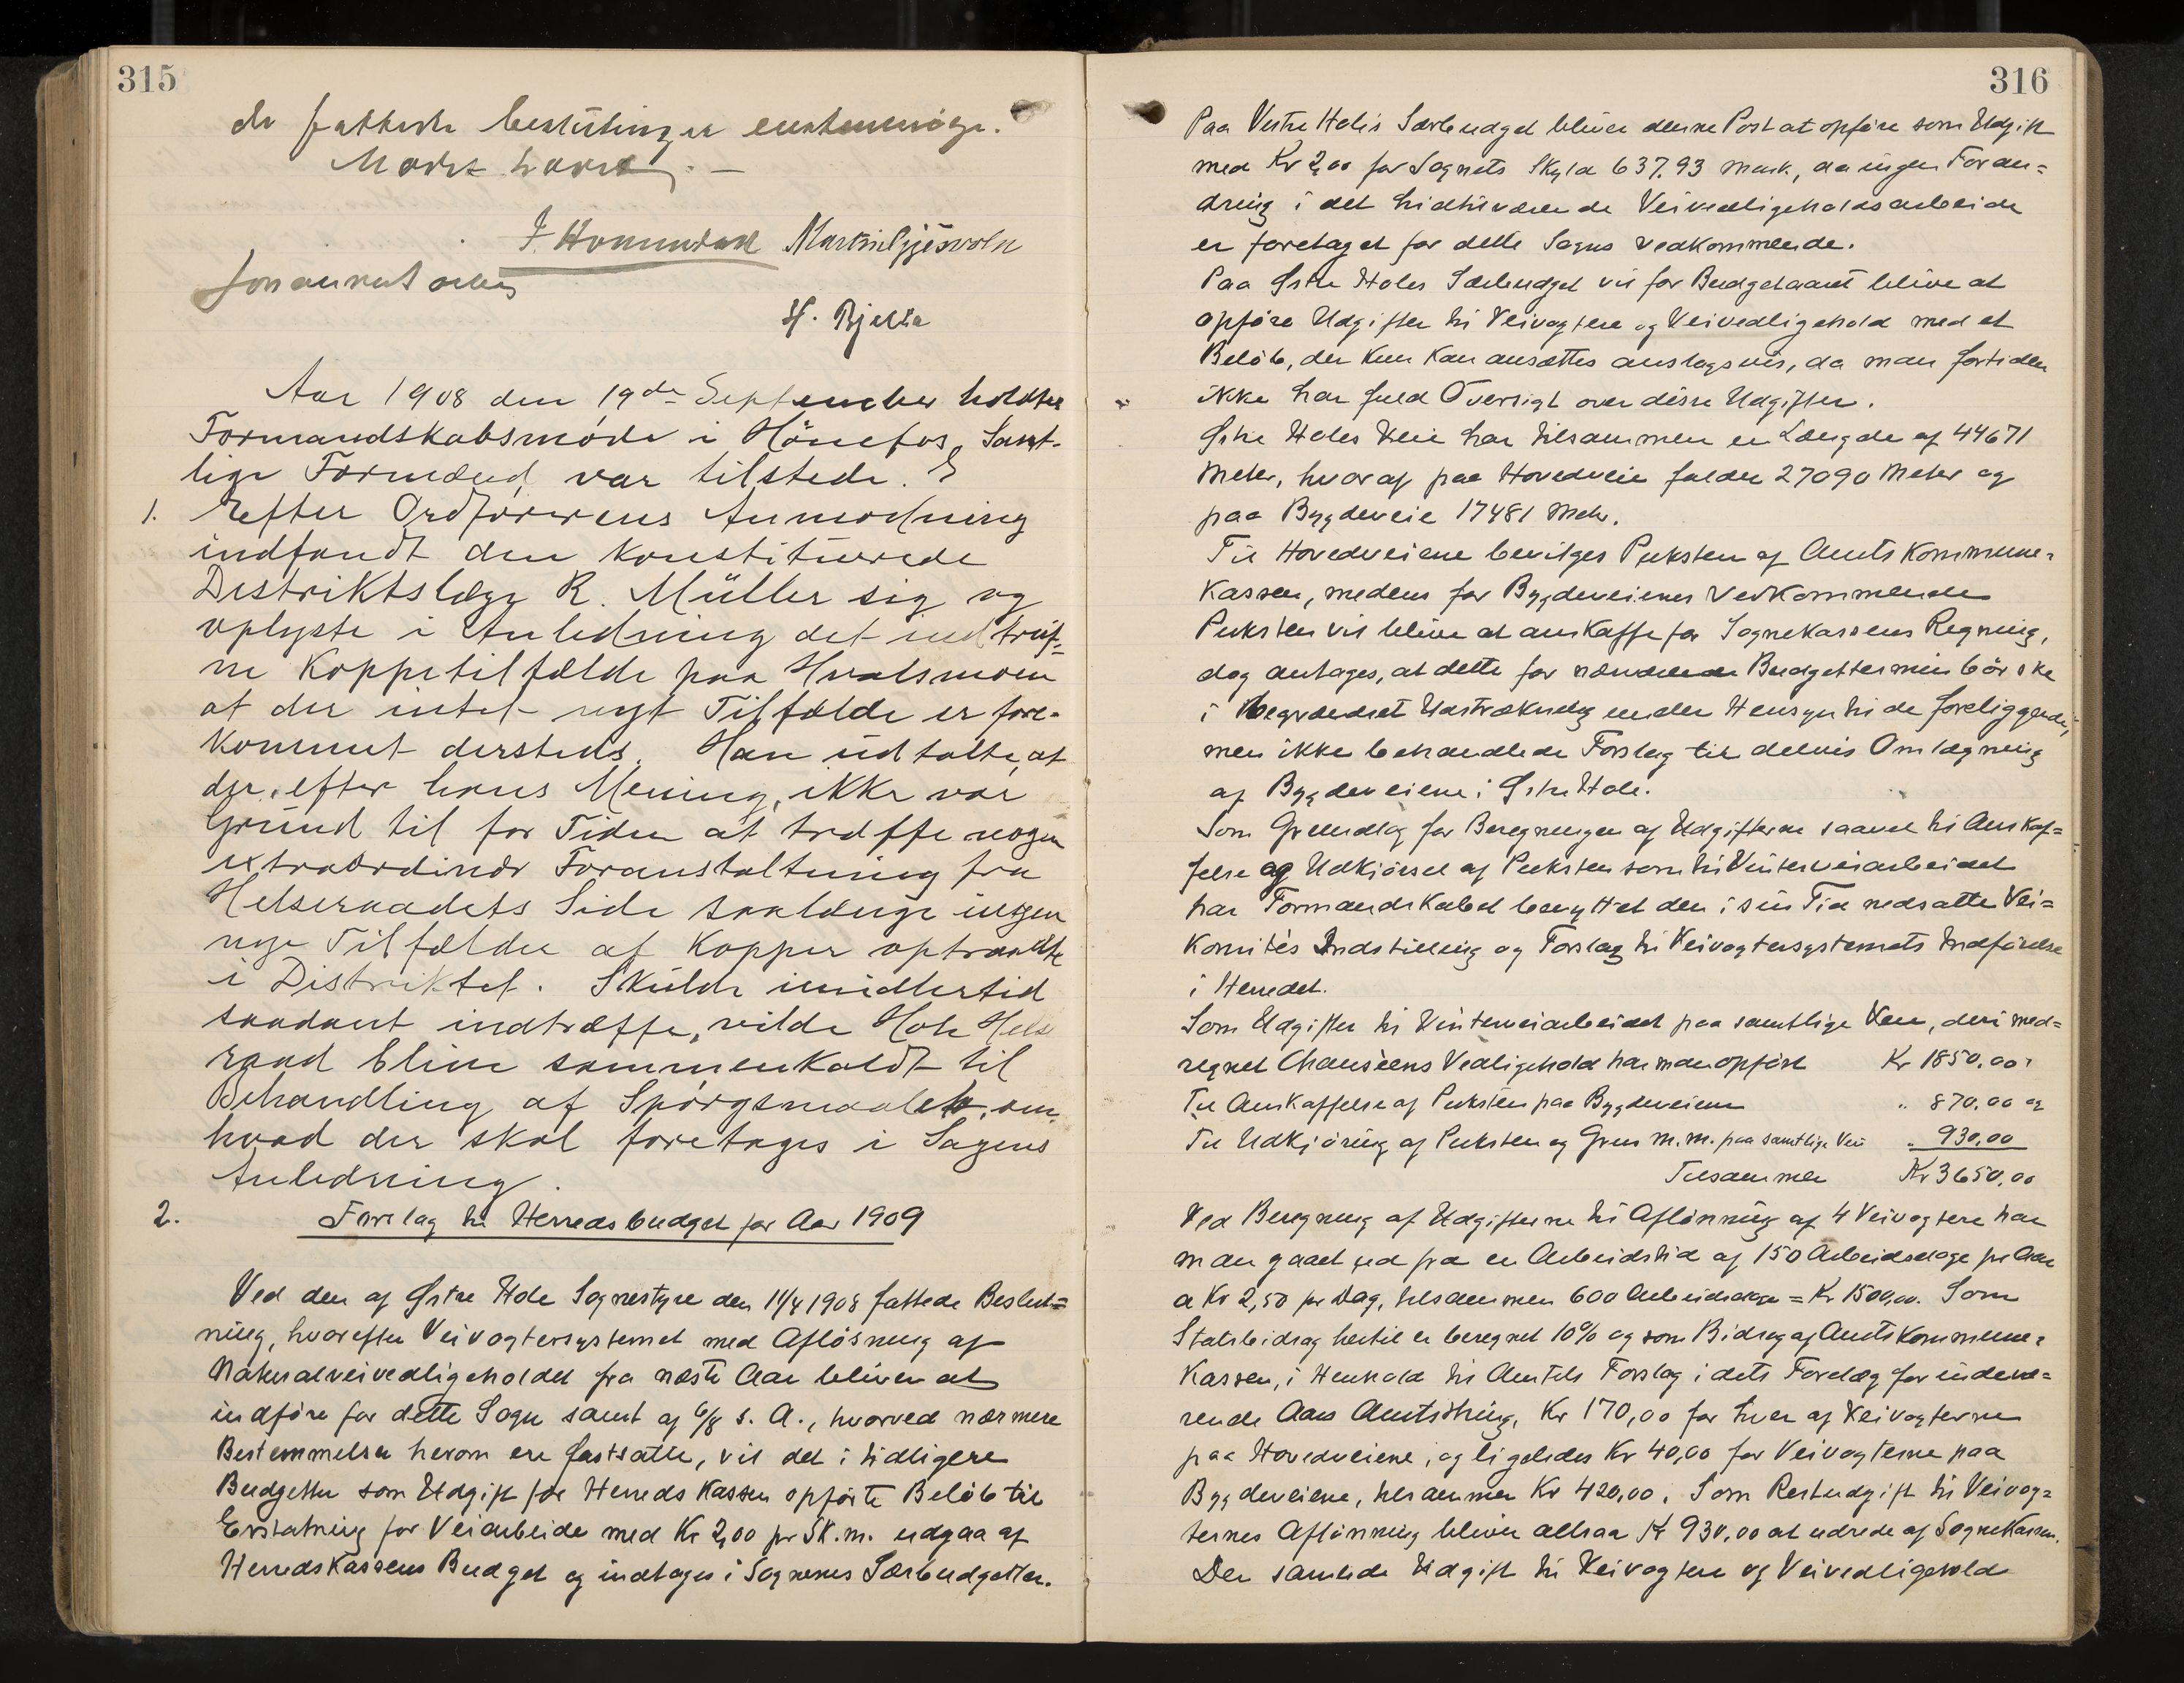 315
de fattede beslutninger enstemmige.
Mødet hævet. —
H. Bjella
Aar 1908 den 19de September holdtes
Formandskabsmøde i Hönefos. Samt-
lige Formænd var tilstede.
1. Efter Ordførerens Anmodning
indfandt den konstituerede
Distriktslæge R. Müller sig og
oplyste i Anledning det indtruf-
ne Koppetilfælde paa Hvalsmoen
at der intet nyt Tilfælde er fore-
kommet dersteds. Han udtalte, at
der, efter hans Mening, ikke var
Grund til for Tiden at træffe nogen
extraordinær Foranstaltning fra
Helseraadets Side saalænge ingen
nye Tilfælder af Kopper optraadte
i Distriktet. Skulde imidlertid
saadant indtræffe, vilde Hole Helse
raad blive sammenkaldt til
Behandling af Spörgsmaalet, om
hvad der skal foretages i Sagens
Anledning.
2. Forslag til Herredsbudget for Aar 1909
Ved den af Østre Hole Sognestyre den 11/4 1908 fattede Beslut=
ning, hvorefter Veivogtersystemet med Aflösning af
Naturalveivedligeholdet fra næste Aar bliver at
indföre for dette Sogn samt af 6/8 s. A., hvorved nærmere
Bestemmelser herom ere fastsatte, vil det i tidligere
Budgetter som Udgift for Herredskassen opförte Belöb til
Erstatning for Veiarbeide med Kr 2,00 pr Sk.m. udgaa af
Herredskassens Budget og indtages i Sognenes Særbudgetter.
316
Paa Vestre Holes Særbudget bliver denne Post at opføre som Udgift
med Kr 2,00 for Sognets Skyld 637.93 Mark, da ingen Foran=
dring i det hidtilværende Veivedligeholdsarbeide
er foretaget for dette Sogns vedkommende.
Paa Østre Holes Særbudget vil for Budgetaaret blive at
opføre Udgifter til Veivogtere og Veivedligehold med et
Belöb, der kun kan ansættes anslagsvis, da man fortiden
ikke har fuld Oversigt over disse Udgifter.
Østre Holes Veie har tilsammen en Længde af 44671
Meter, hvoraf paa Hovedveie falder 27090 Meter og
paa Bygdeveie 17481 Metr.
Til Hovedveiene bevilges Puksten af Amtskommune=
kassen, medens for Bygdeveienes Vedkommende
Puksten vil blive at anskaffe for Sognekassens Regning,
dog antages, at dette for nærværende Budgettermin bör ske
i begrændset Udstrækning under Hensyn til de foreliggende,
men ikke behandlede Forslag til delvis Omlægning
af Bygdeveiene i Østre Hole.
Som Grundlag for Beregningen af Udgifterne saavel til Anskaf=
felse og Udkjörsel af Puksten som til Vinterveiarbeidet
har Formandskabet benyttet den i sin Tid nedsatte Vei=
komités Indstilling og Forslag til Veivogtersystemets Indförelse
i Herredet.
Som Udgifter til Vinterveiarbeidet paa samtlige Veie, deri med=
regnet Chauséens Vedligehold har man opfört Kr 1850,00,
Til Anskaffelse af Puksten paa Bygdeveiene " 870,00 og
Til Udkjöring af Puksten og Grus m.m. paa samtlige Vei " 930,00
Tilsammen Kr 3650,00
Ved Beregning af Udgifterne til Aflönning af 4 Veivogtere har
man gaaet ud fra en Arbeidstid af 150 Arbeidsdage pr Aar
a Kr 2,50 pr Dag, tilsammen 600 Arbeidsdage = Kr 1500,00. Som
Statsbidrag hertil er beregnet 10% og som Bidrag af Amtskommune=
kassen, i Henhold til Amtets Forslag i dets Forelæg for indevæ=
rende Aars Amtsthing, Kr 170,00 for hver af Veivogterne
paa Hovedveiene, og ligeledes Kr 40,00 for Veivogterne paa
Bygdeveiene, tilsammen Kr 420,00. Som Restudgift til Veivog=
ternes Aflönning bliver altsaa Kr 930,00 at udrede af Sognekassen.
Den samlede Udgift til Veivogtere og Veivedligehold